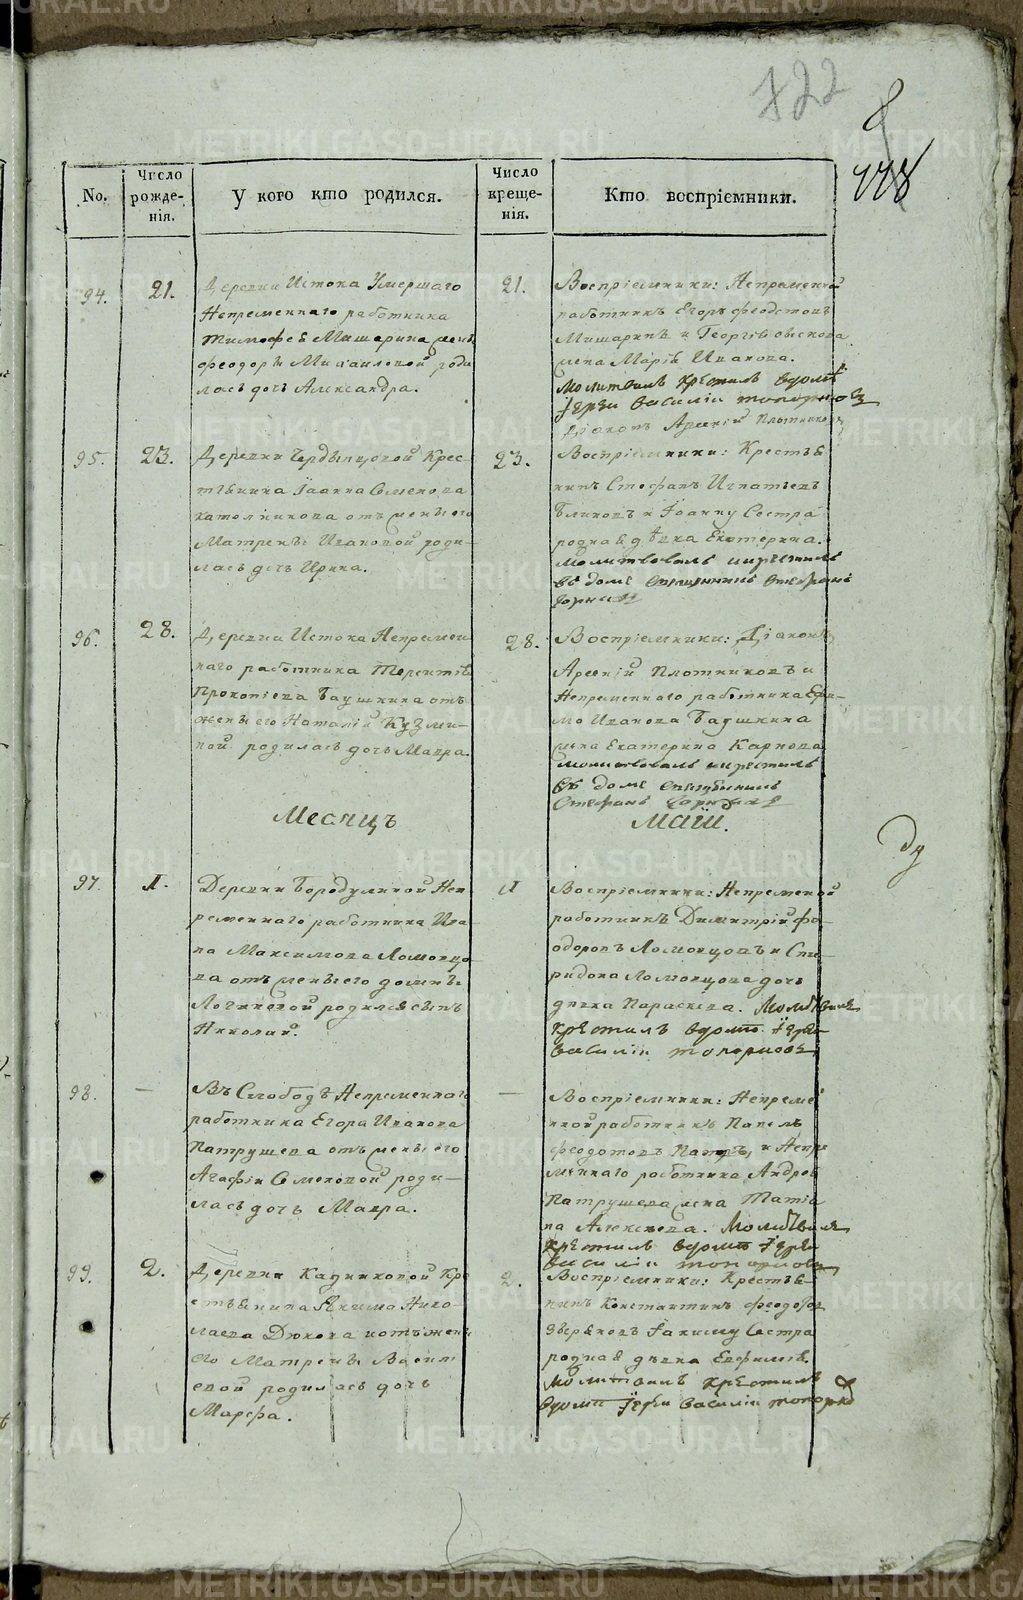 722
118
No.
Число рожде-нія.
У кого кто родился.
Число креще-нія.
Кто воспріемники.
94.
21.
Деревни Истока Умершаго
Непременнаго работника
Тимофеѣ Мишарина жены
феодоры Михаиловой роди
лась дочь Александра.
21.
Воспріемники: Непременной
работникъ Егоръ феодотовъ
Мишаринъ и Георгія
жена Марія Иванова.
Молитвилъ крестилъ вдоме
Іерей Василіи топорковъ
Діаконъ Арсеній Плотниковъ
95.
23.
Деревни Крес-
тьянина Іоанна Семенова
Католникова отъ жены его
Матрены Ивановой роди-
лась дочь Ирина.
23.
Воспріемники: Крестья
нинъ Стефанъ Игнатьевъ
Блиновъ и Іоанну Сестра
родная дѣвка Екатерина.
молитвовалъ и крестилъ
въ доме Священникъ Стефанъ
96.
28.
Деревни Истока Непремен-
наго работника Терентія
Прокопіева Баушкина отъ
жены его Наталіи Кузми-
ной родилась дочь Мавра.
28.
Воспріемники: Діаконъ
Арсеній Плотниковъ и
Непременнаго работника Ефи-
мо Иванова Баушкина
жена Екатерина Карпова
молитвовалъ и крестилъ
въ доме Священникъ
Стефанъ
Месяцъ
Маій.
ду
97.
1.
Деревни Бородулиной Неп
ременнаго работника Ива
на Максимова Ломовцо
ва отъ жены его домны
Логиновой родился сынъ
Николай.
1
Воспріемники: Непременой
работникъ Димитрій фе-
одоровъ Ломовцовъ и Спи
ридона Ломовцова дочь
дѣвка Параскева. Молитвилъ
крестилъ вдоме Іерей
василіи топорковъ
98.
—
Въ Слободѣ Непременнаго
работника Егора Иванова
Патрушева отъ жены его
Агафіи Семеновой роди-
лась дочь Мавра.
—
Воспріемники: Непремен
ной работникъ Павелъ
феодотовъ и Непре
меннаго работника Андрея
Патрушева жена Татіа
на Алексеева. Молитвилъ
крестилъ вдоме Іерей
василіи топорковъ
99.
2.
Деревни Кадниковой Кре
стьянина Якима Нико-
лаева Дюкова и отъ жены
его Матрены Васил
евой родилась дочь
Марфа.
2.
Воспріемники: Крестья-
нинъ Константинъ феодотов
Звѣревъ Іакиму Сестра
родная дѣвка Евфимія.
Молитвилъ крестилъ
вдоме Іереи василіи топорков
METRIKI.GASO-URAL.RU